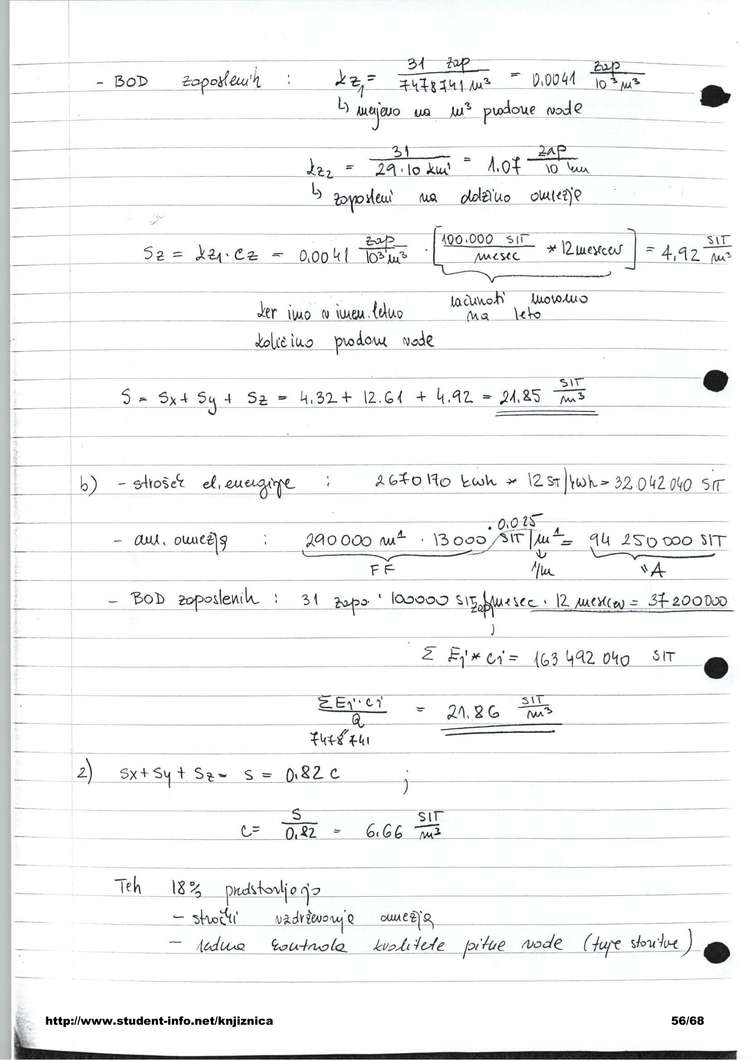 - BOD zaposlenih : kz1 = 31 zap / 7478741 m³ = 0,0041 zap / 10³ m³
↳ merjeno na m³ prodane vode
kz2 = 31 / 29.10 km = 1.07 zap / 10 km
↳ zaposleni na dolžino omrežje
Sz = kz1 · cz = 0,0041 zap / 10³ m³ · [100.000 SIT / mesec * 12 mesecev] = 4,92 SIT / m³
ker imo v imen. letno računati moramo na leto
količino prodane vode
S = Sx + Sy + Sz = 4.32 + 12.61 + 4.92 = 21,85 SIT / m³
b) - strošek el. energije : 2670170 kwh * 12 SIT/kwh = 32.042040 SIT
- am. omrežja : 290000 m¹ · 13000 · 0,025 SIT/m¹ = 94 250 000 SIT
FF 1/m "A
- BOD zaposlenih : 31 zapo · 100000 SIT/zap/mesec · 12 mesecev = 37200000
;
Σ Ei * ci = 163 492 040 SIT
ΣEi·ci / Q = 21.86 SIT / m³
7478 741
2) Sx + Sy + Sz = S = 0,82 C ;
C = S / 0,82 = 6,66 SIT / m³
Teh 18% predstavljajo
- stročki vzdrževanje omrežja
- redna kontrola kvalitete pitne vode (tuje storitve)
http://www.student-info.net/knjiznica 56/68